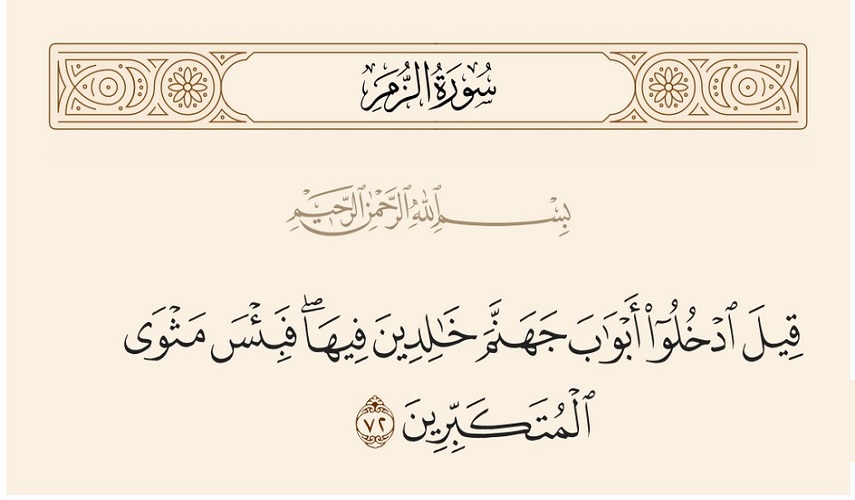 سُورَةُ الزُّمَرِ
بِسْمِ ٱللَّهِ ٱلرَّحْمَٰنِ ٱلرَّحِيمِ
قِيلَ ٱدْخُلُوٓا۟ أَبْوَٰبَ جَهَنَّمَ خَـٰلِدِينَ فِيهَا ۖ فَبِئْسَ مَثْوَى
ٱلْمُتَكَبِّرِينَ ٧٢